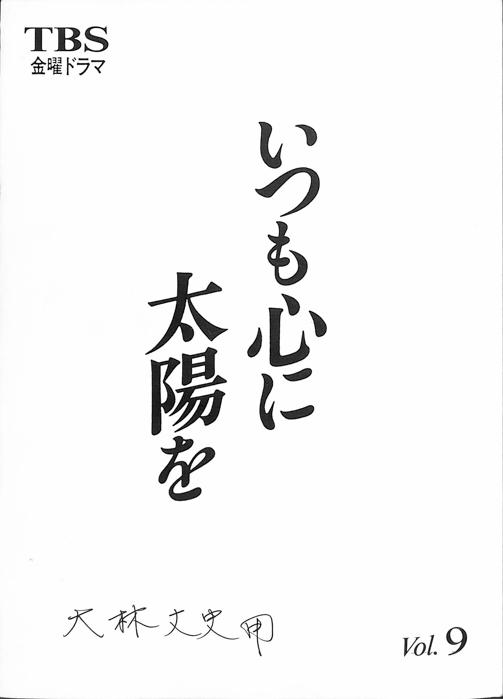 TBS
金曜ドラマ
いつも心に
太陽を
大林丈史用
Vol. 9